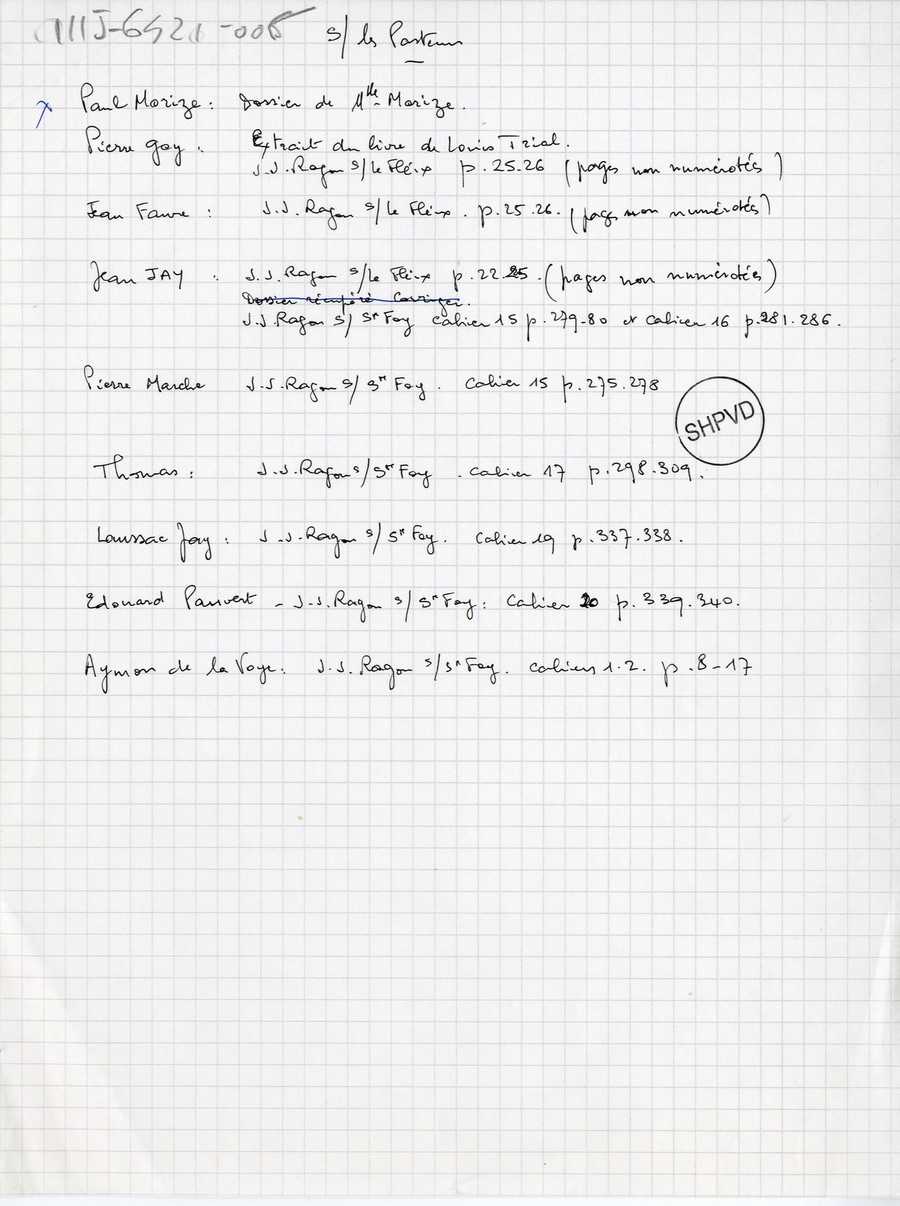 IIIJ-6421-008
s/ les Pasteurs
x Paul Morize : Dossier de Mlle Morize.
Pierre Goy . Extrait du livre de Louis Trial.
J.J. Ragon s/ le Fleix p. 25.26 (pages non numérotés)
Jean Faure : J.J. Ragon s/ le Fleix. p. 25.26. (pages non numérotés)
Jean JAY : J.J. Ragon s/ le Fleix p. 22.25. (pages non numérotées)
Dossier récupéré Corriger.
J.J. Ragon s/ Ste Foy cahier 15 p. 279-80 et cahier 16 p. 281.286.
Pierre Marche J.J. Ragon s/ Ste Foy . Cahier 15 p. 275.278
SHPVD
Thomas : J.J. Ragon s/ Ste Foy . cahier 17 p. 298.309.
Loussac Jay : J.J. Ragon s/ Ste Foy . Cahier 19 p. 337.338.
Edouard Pauvert - J.J. Ragon s/ Ste Foy : Cahier 20 p. 339.340.
Aymon de la Voye : J.J. Ragon s/ Ste Foy . cahiers 1.2. p. 8-17